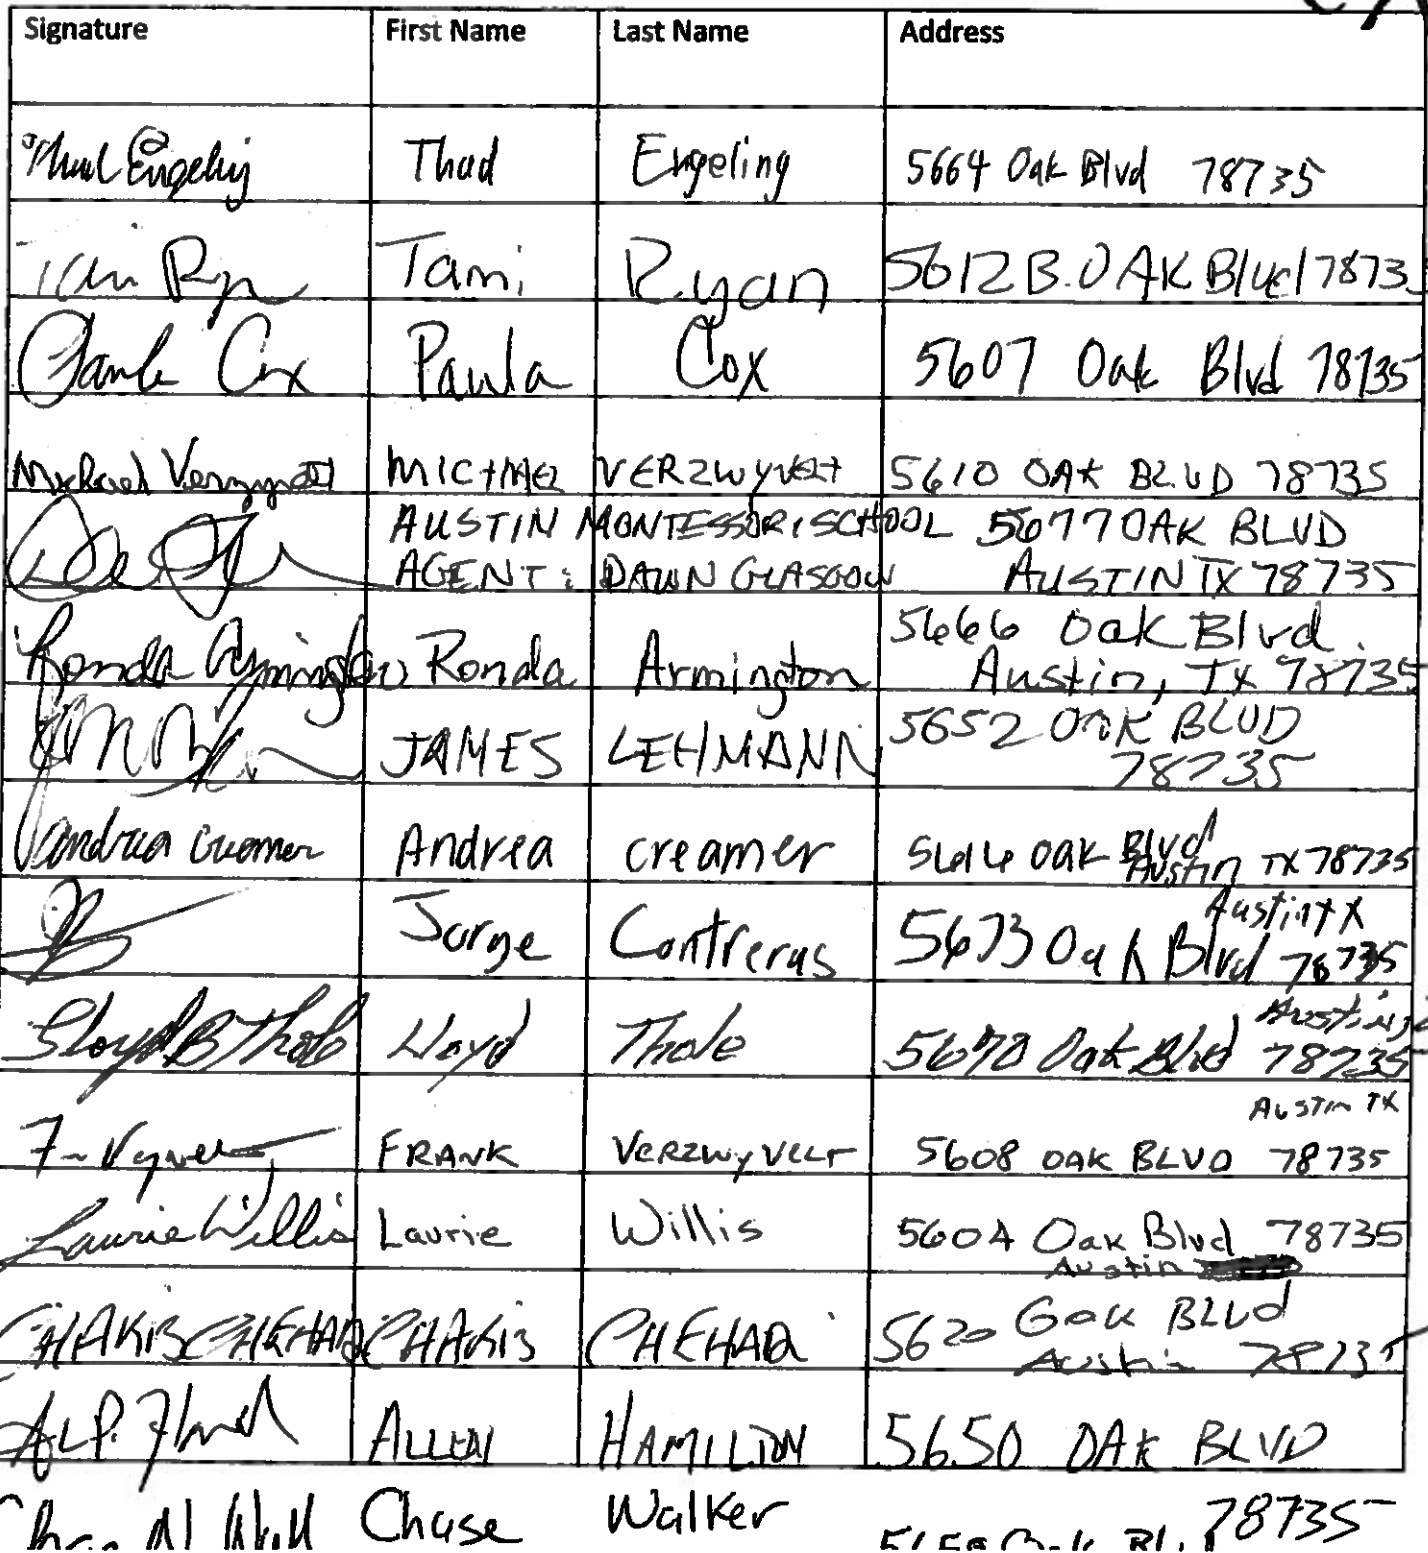 Signature First Name Last Name Address
Thad Engeling Thad Engeling 5664 Oak Blvd 78735
Tami Ryan Tami Ryan 5612 B. OAK Blvd 7873
Paula Cox Paula Cox 5607 Oak Blvd 78735
Michael Verzwyvelt MICHAEL VERZWYVELT 5610 OAK BLVD 78735
AUSTIN MONTESSORI SCHOOL 5677 OAK BLVD
AGENT: DAWN GLASGOW AUSTIN TX 78735
5666 Oak Blvd.
Ronda Armington Ronda Armington Austin, Tx 78735
JAMES LEHMANN 5652 OAK BLVD
78735
Andrea Creamer Andrea creamer 5616 Oak Blvd
Austin TX 78735
Austin TX
Jorge Contreras 5673 Oak Blvd 78735
Austin
Lloyd B Thole Lloyd Thole 5670 Oak Blvd 78735
AUSTIN TX
FRANK VERZWYVELT 5608 OAK BLVD 78735
Laurie Willis Laurie Willis 5604 Oak Blvd 78735
Austin
CHAKIB CHEHADI CHAKIB CHEHADI 5620 Oak BLVD
Austin 78735
ALLEN HAMILTON 5650 OAK BLVD
Chase Walker 78735
Oak Blvd